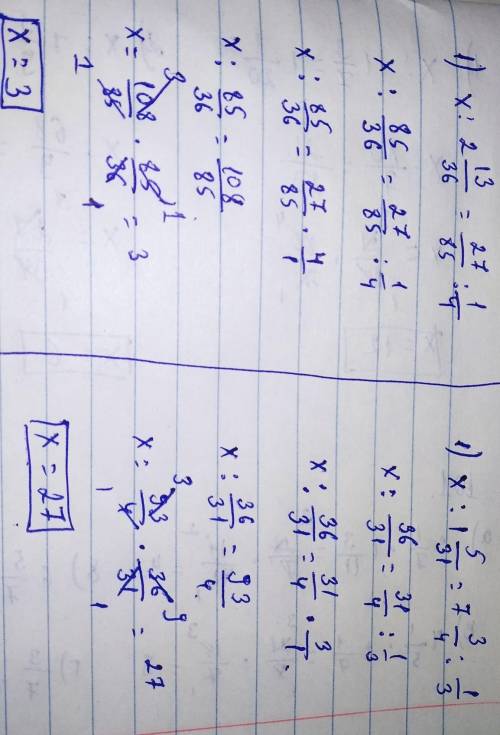 1) x : 2 13/36 = 27/85 : 1/4
x : 85/36 = 27/85 : 1/4
x : 85/36 = 27/85 · 4/1
x : 85/36 = 108/85
x = 108/85 · 85/36 = 3
3 1
1 1
x = 3
1) x : 1 5/31 = 7 3/4 : 1/3
x : 36/31 = 31/4 : 1/3
x : 36/31 = 31/4 · 3/1
x : 36/31 = 93/4
x = 93/4 · 36/31 = 27
3 9
1 1
x = 27